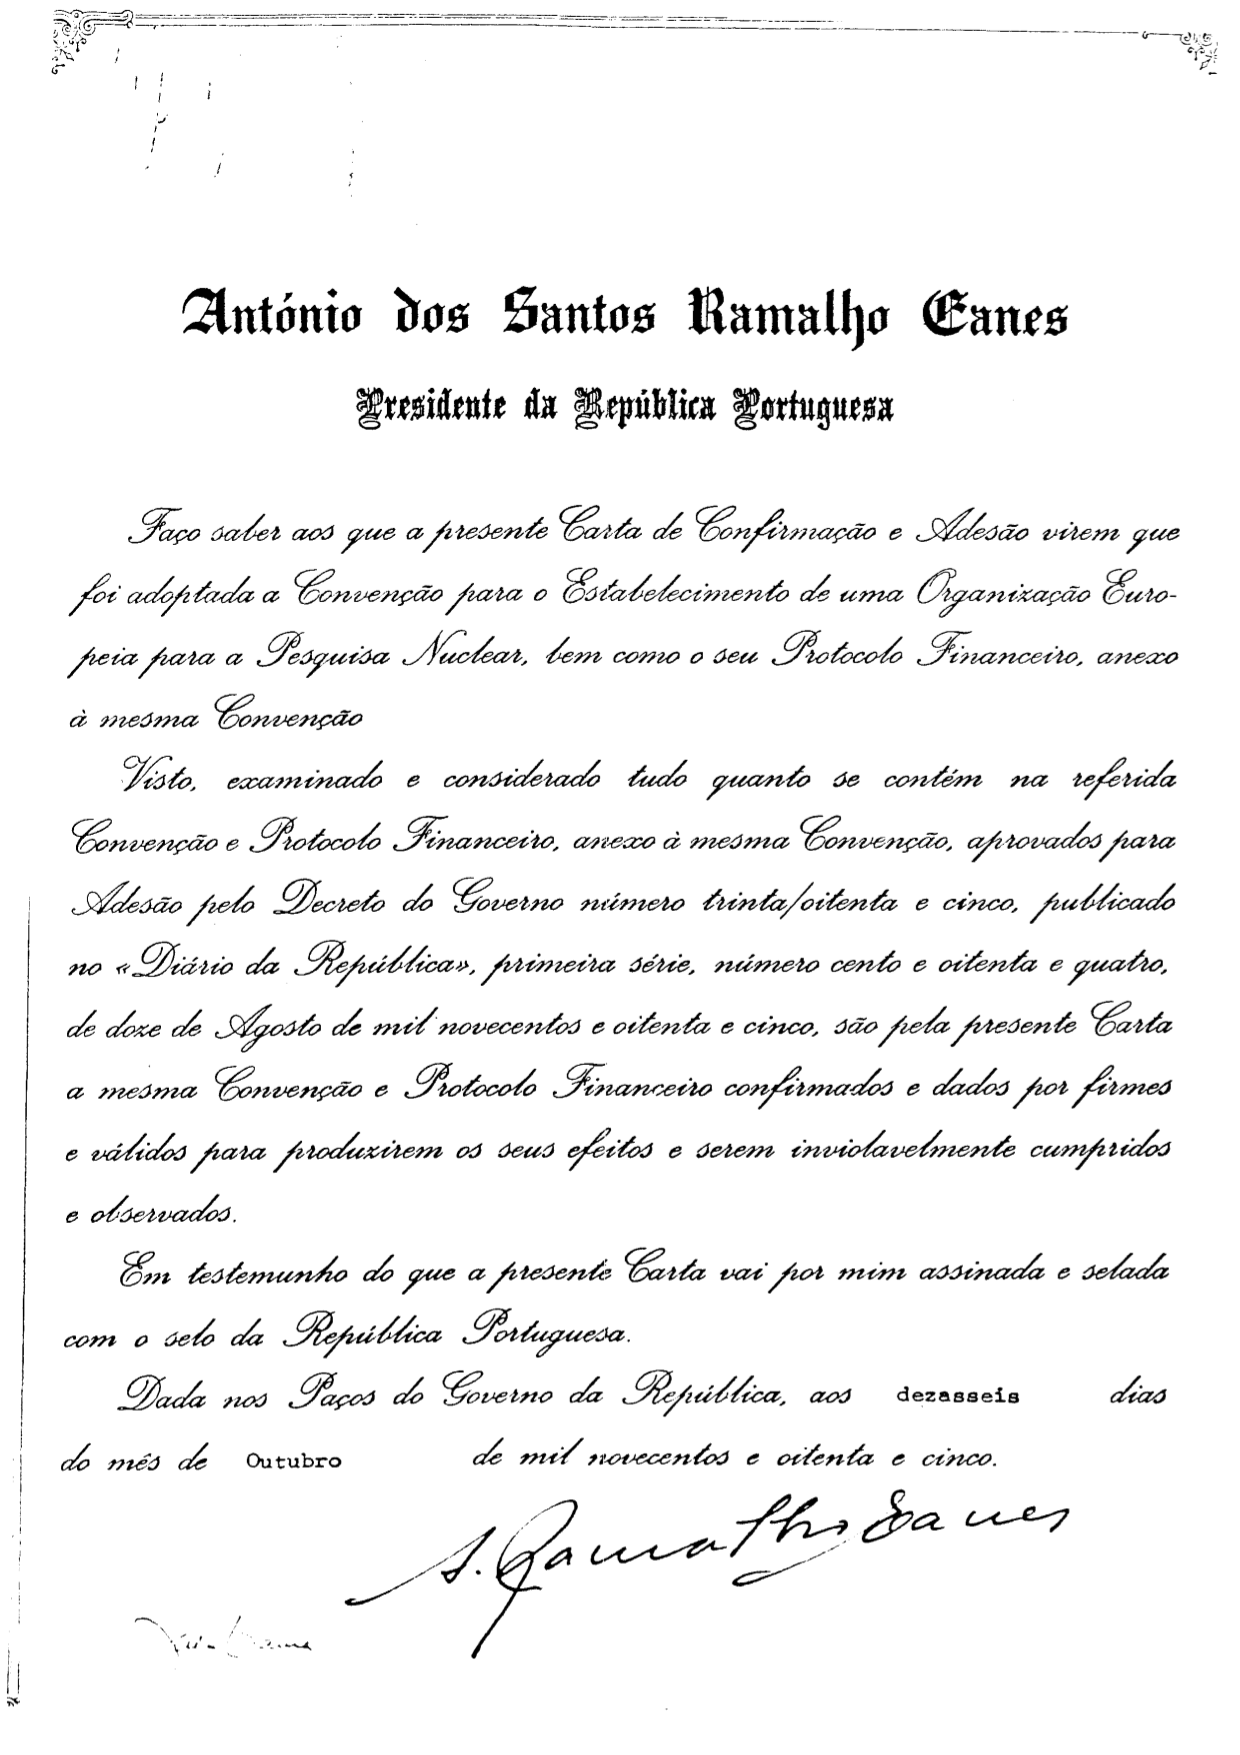 António dos Santos Ramalho Eanes
Presidente da República Portuguesa
Faço saber aos que a presente Carta de Confirmação e Adesão virem que
foi adoptada a Convenção para o Estabelecimento de uma Organização Euro-
peia para a Pesquisa Nuclear, bem como o seu Protocolo Financeiro, anexo
à mesma Convenção
Visto, examinado e considerado tudo quanto se contém na referida
Convenção e Protocolo Financeiro, anexo à mesma Convenção, aprovados para
Adesão pelo Decreto do Governo número trinta/oitenta e cinco, publicado
no «Diário da República», primeira série, número cento e oitenta e quatro,
de doze de Agosto de mil novecentos e oitenta e cinco, são pela presente Carta
a mesma Convenção e Protocolo Financeiro confirmados e dados por firmes
e válidos para produzirem os seus efeitos e serem inviolavelmente cumpridos
e observados.
Em testemunho do que a presente Carta vai por mim assinada e selada
com o selo da República Portuguesa.
Dada nos Paços do Governo da República, aos dezasseis dias
do mês de Outubro de mil novecentos e oitenta e cinco.
A. Ramalho Eanes